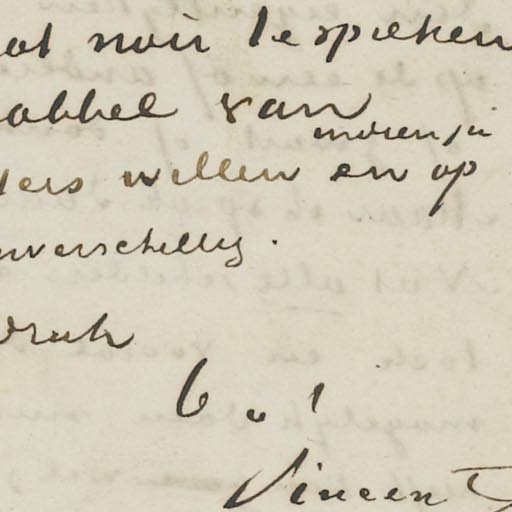 ot noir te spreken
abbel van
indien zij
ders willen en op
nverschillig.
druk
b. à t.
Vincent